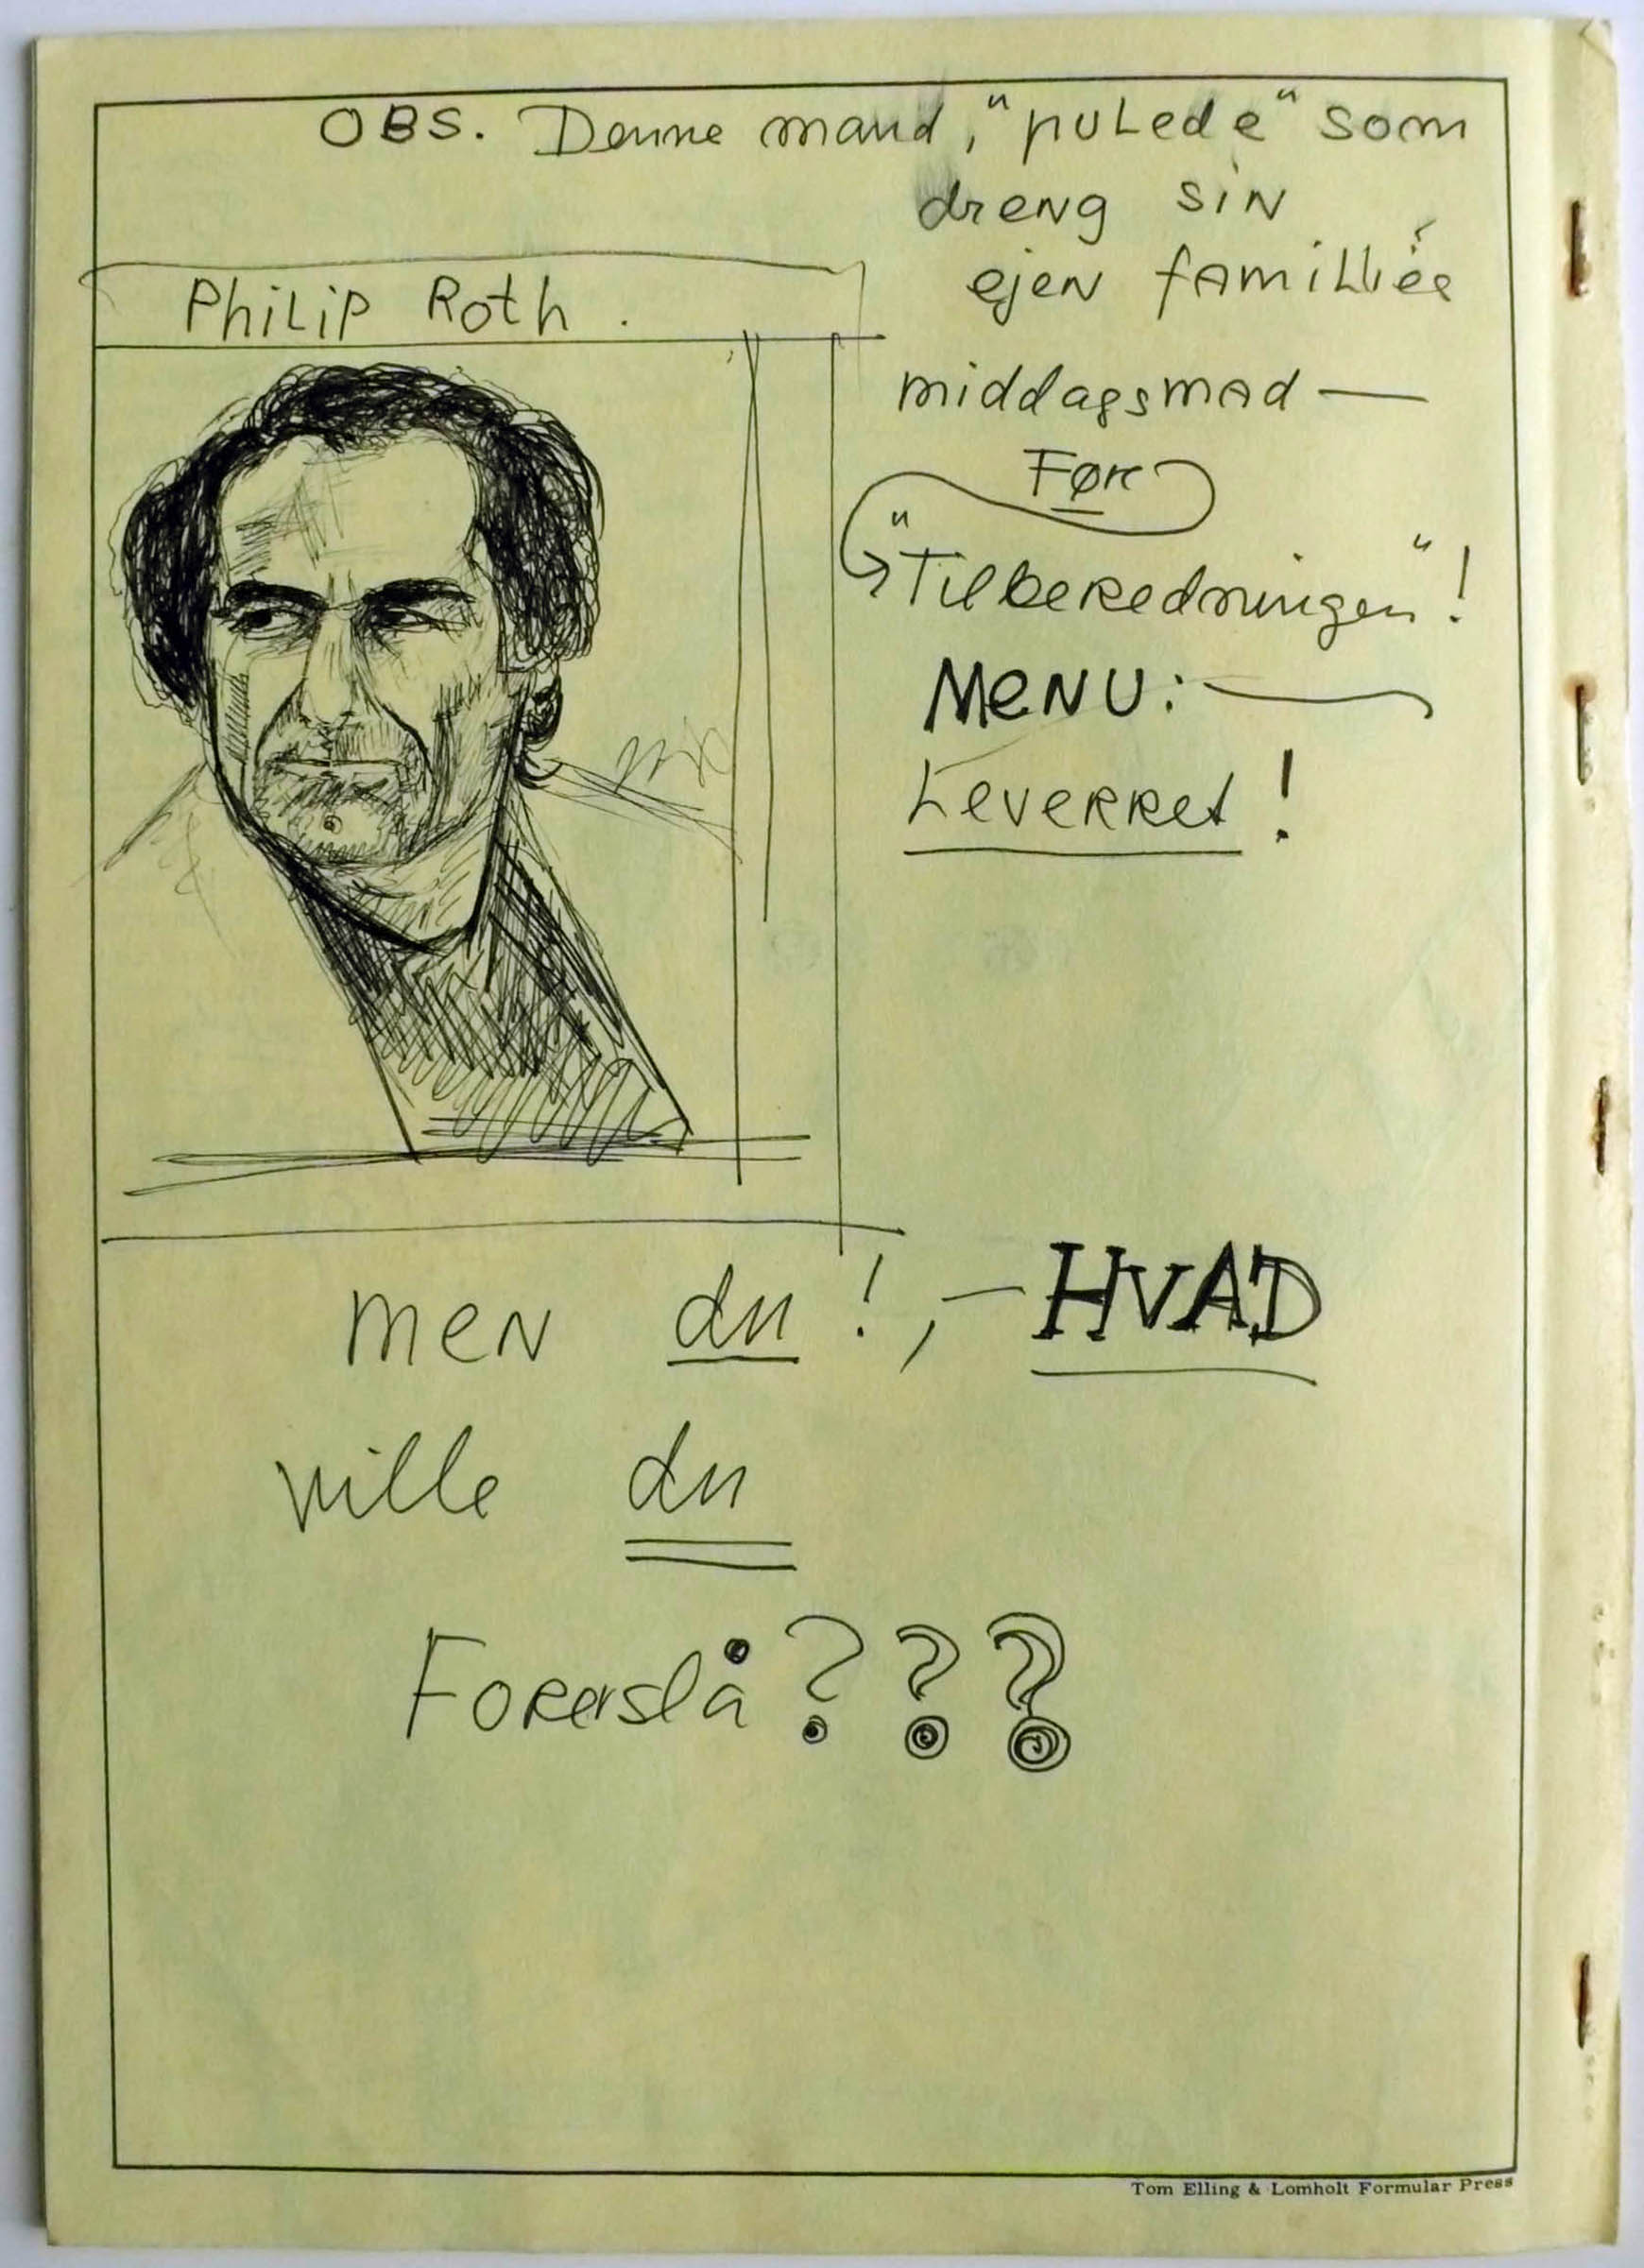 OBS. Denne mand, "pulede" som
dreng sin
ejen familliés
Philip Roth.
middagsmad —
Før
"Tilberedningen"!
MENU: —
Leverret!
men du!, — HVAD
ville du
Forerslå???
Tom Elling & Lomholt Formular Press